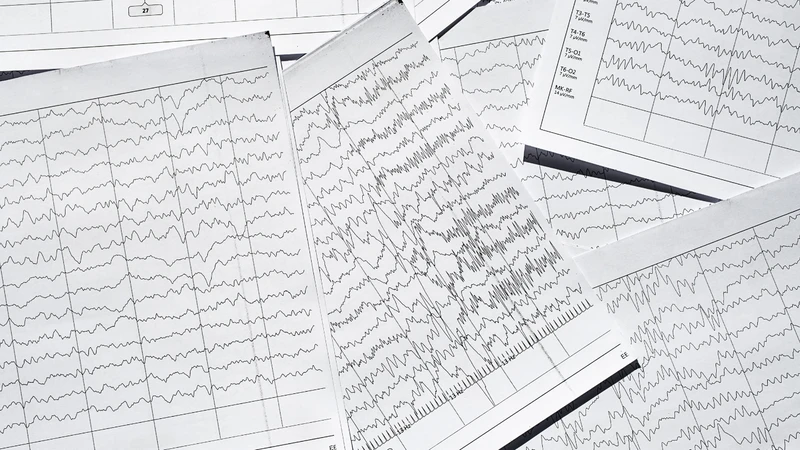 27
T3-T5
7 µV/mm
T4-T6
7 µV/mm
T5-O1
7 µV/mm
T6-O2
7 µV/mm
MK-RF
14 µV/mm
EE
EE